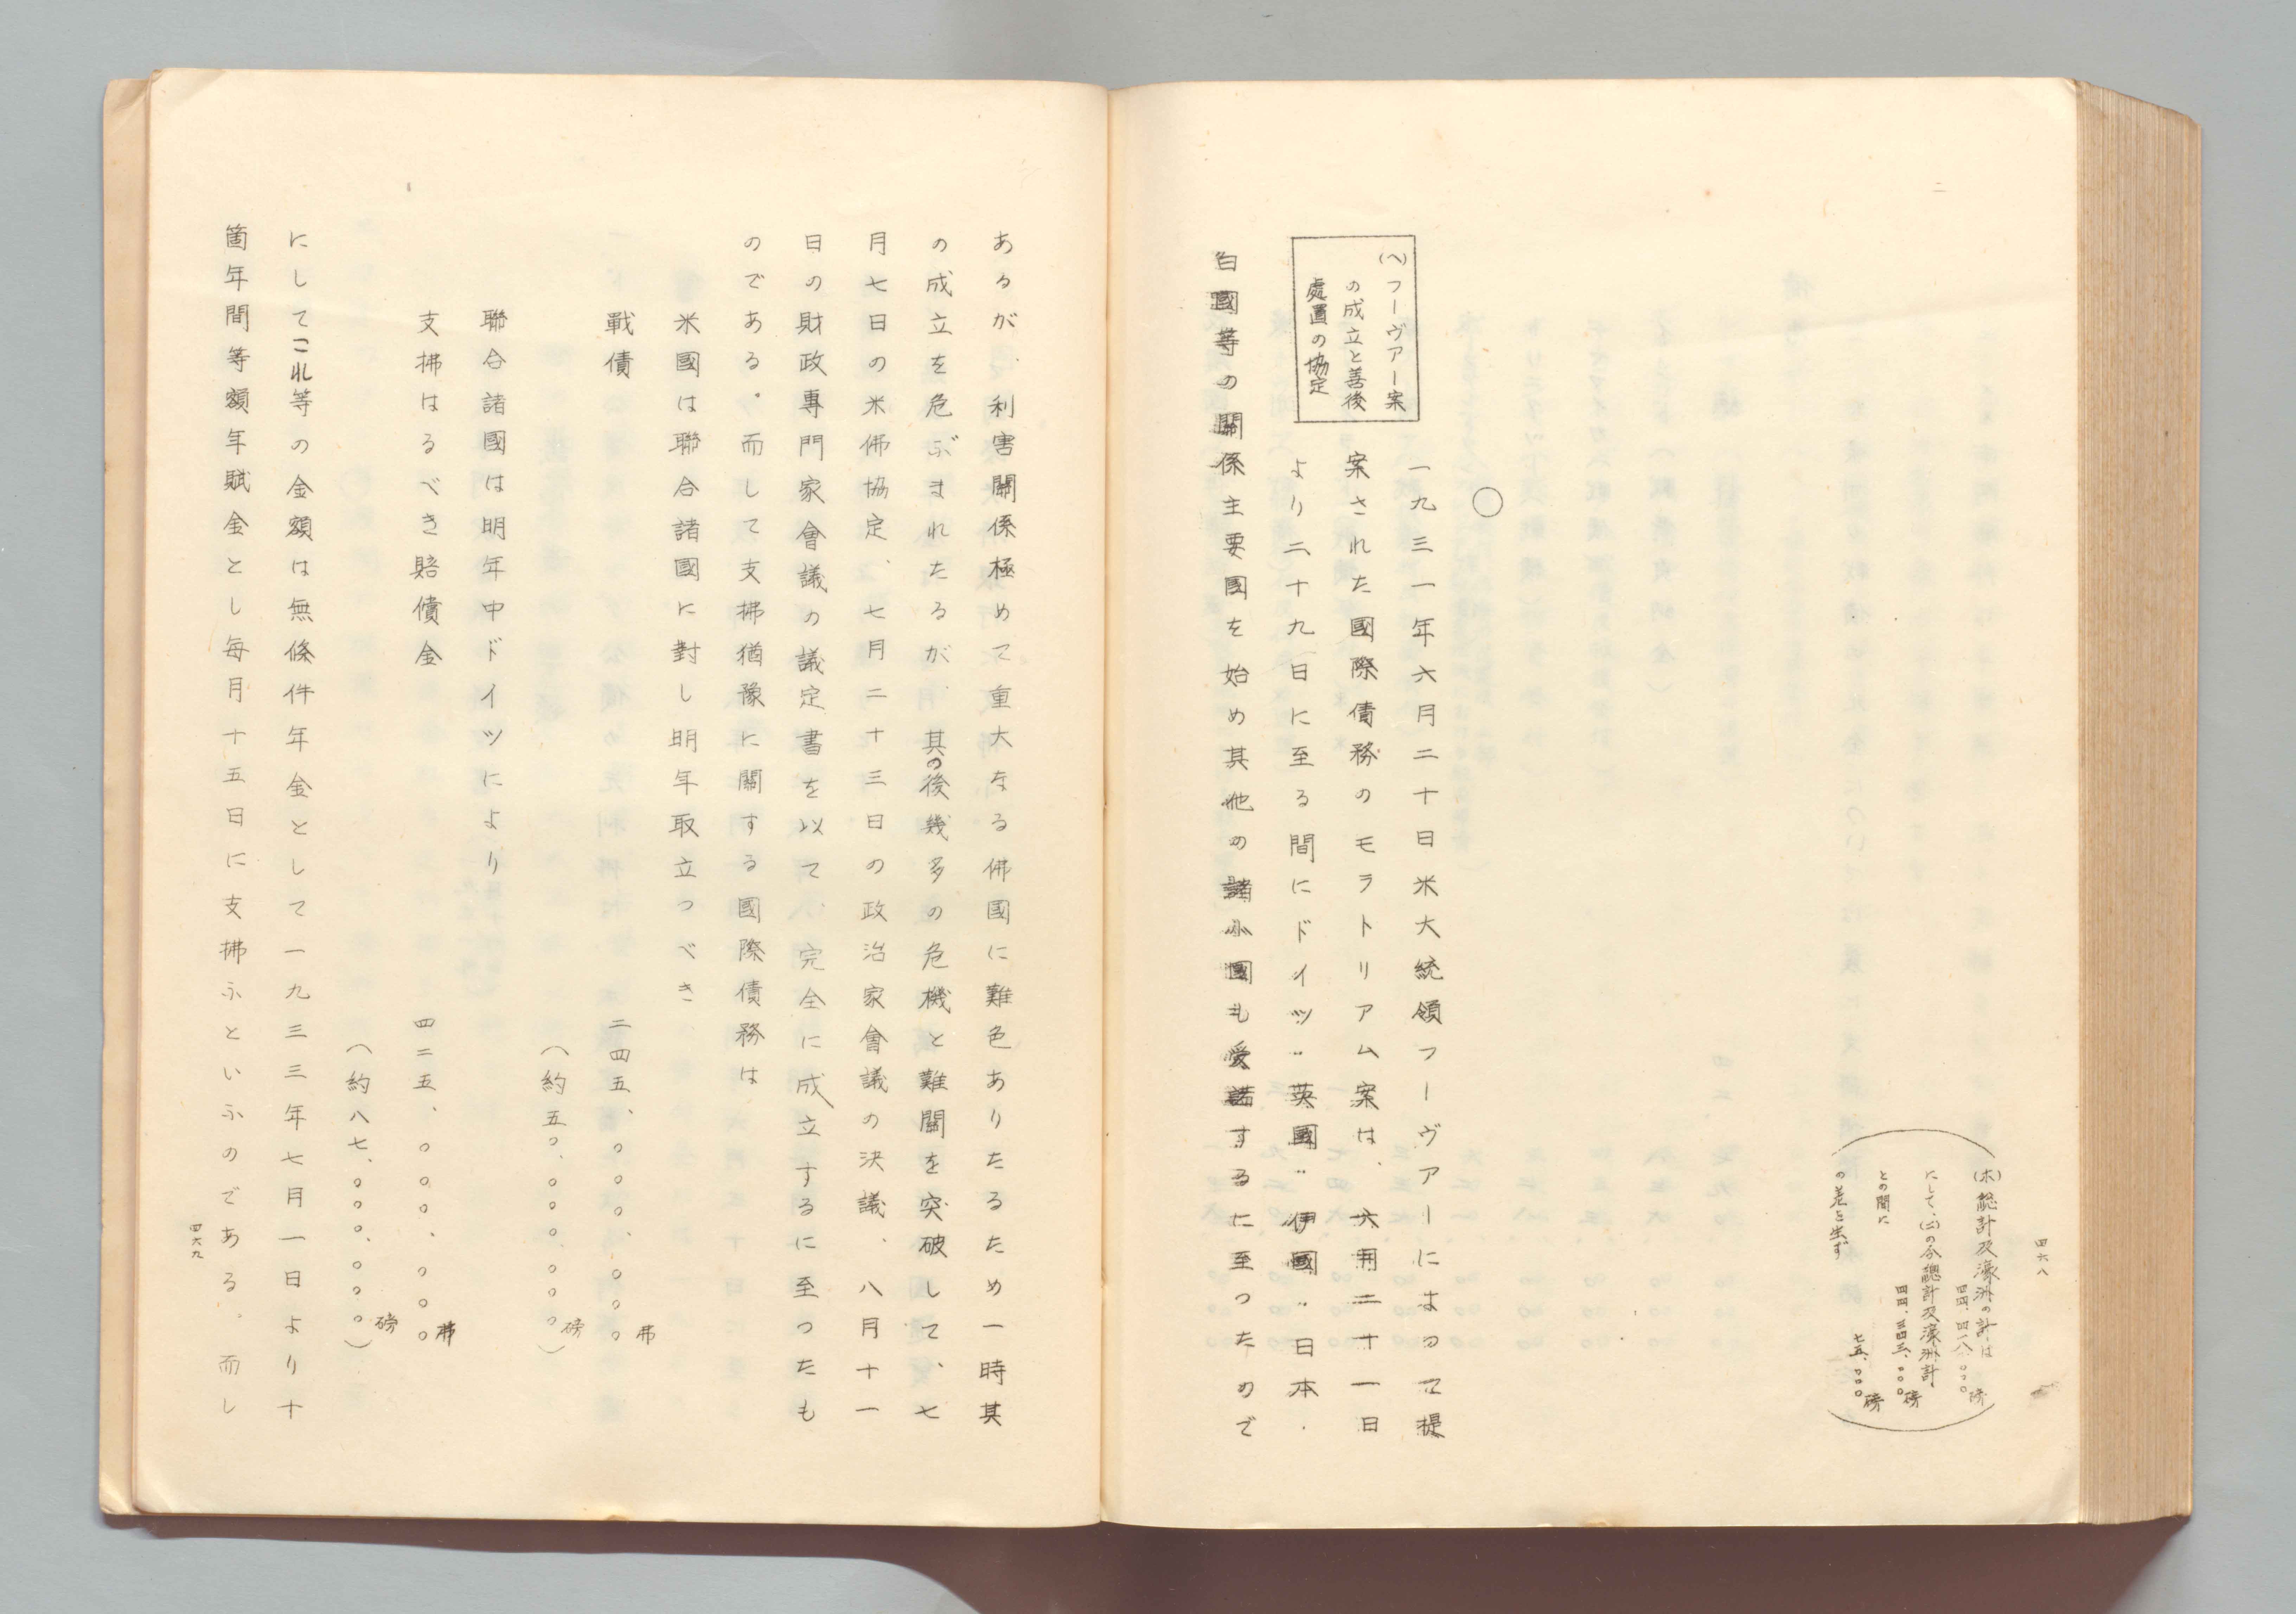 四六八
(ホ)總計及濠洲の計は
四四、四一八、〇〇〇磅
にして、(二)の合總計及濠洲計
四四、三四三、〇〇〇磅
との間に
七五、〇〇〇磅
の差を生ず
○
(ヘ)フーヴァー案
の成立と善後
處置の協定
一九三一年六月二十日米大統領フーヴァーによつて提
案された國際債務のモラトリアム案は、六月二十一日
より二十九日に至る間にドイツ、英國、伊國、日本、
白國等の關係主要國を始め其他の諸小國も受諾するに至つたので
あるが、利害關係極めて重大なる佛國に難色ありたるため一時其
の成立を危ぶまれたるが、其の後幾多の危機と難關を突破して、七
月七日の米佛協定、七月二十三日の政治家會議の決議、八月十一
日の財政專門家會議の議定書を以て、完全に成立するに至つたも
のである。而して支拂猶豫に關する國際債務は
米國は聯合諸國に對し明年取立つべき
戰債 二四五、〇〇〇、〇〇〇弗
(約五〇、〇〇〇、〇〇〇磅)
聯合諸國は明年中ドイツにより
支拂はるべき賠償金 四二五、〇〇〇、〇〇〇弗
(約八七、〇〇〇、〇〇〇磅)
にしてこれ等の金額は無條件年金として一九三三年七月一日より十
箇年間等額年賦金とし毎月十五日に支拂ふといふのである。而し
四六九